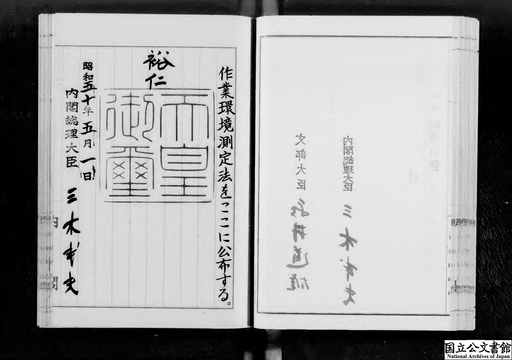 作業環境測定法をここに公布する。
裕仁
天皇御璽
昭和五十年五月一日
内閣総理大臣 三木武夫
内閣
内閣総理大臣 三木武夫
文部大臣 永井道雄
国立公文書館
National Archives of Japan